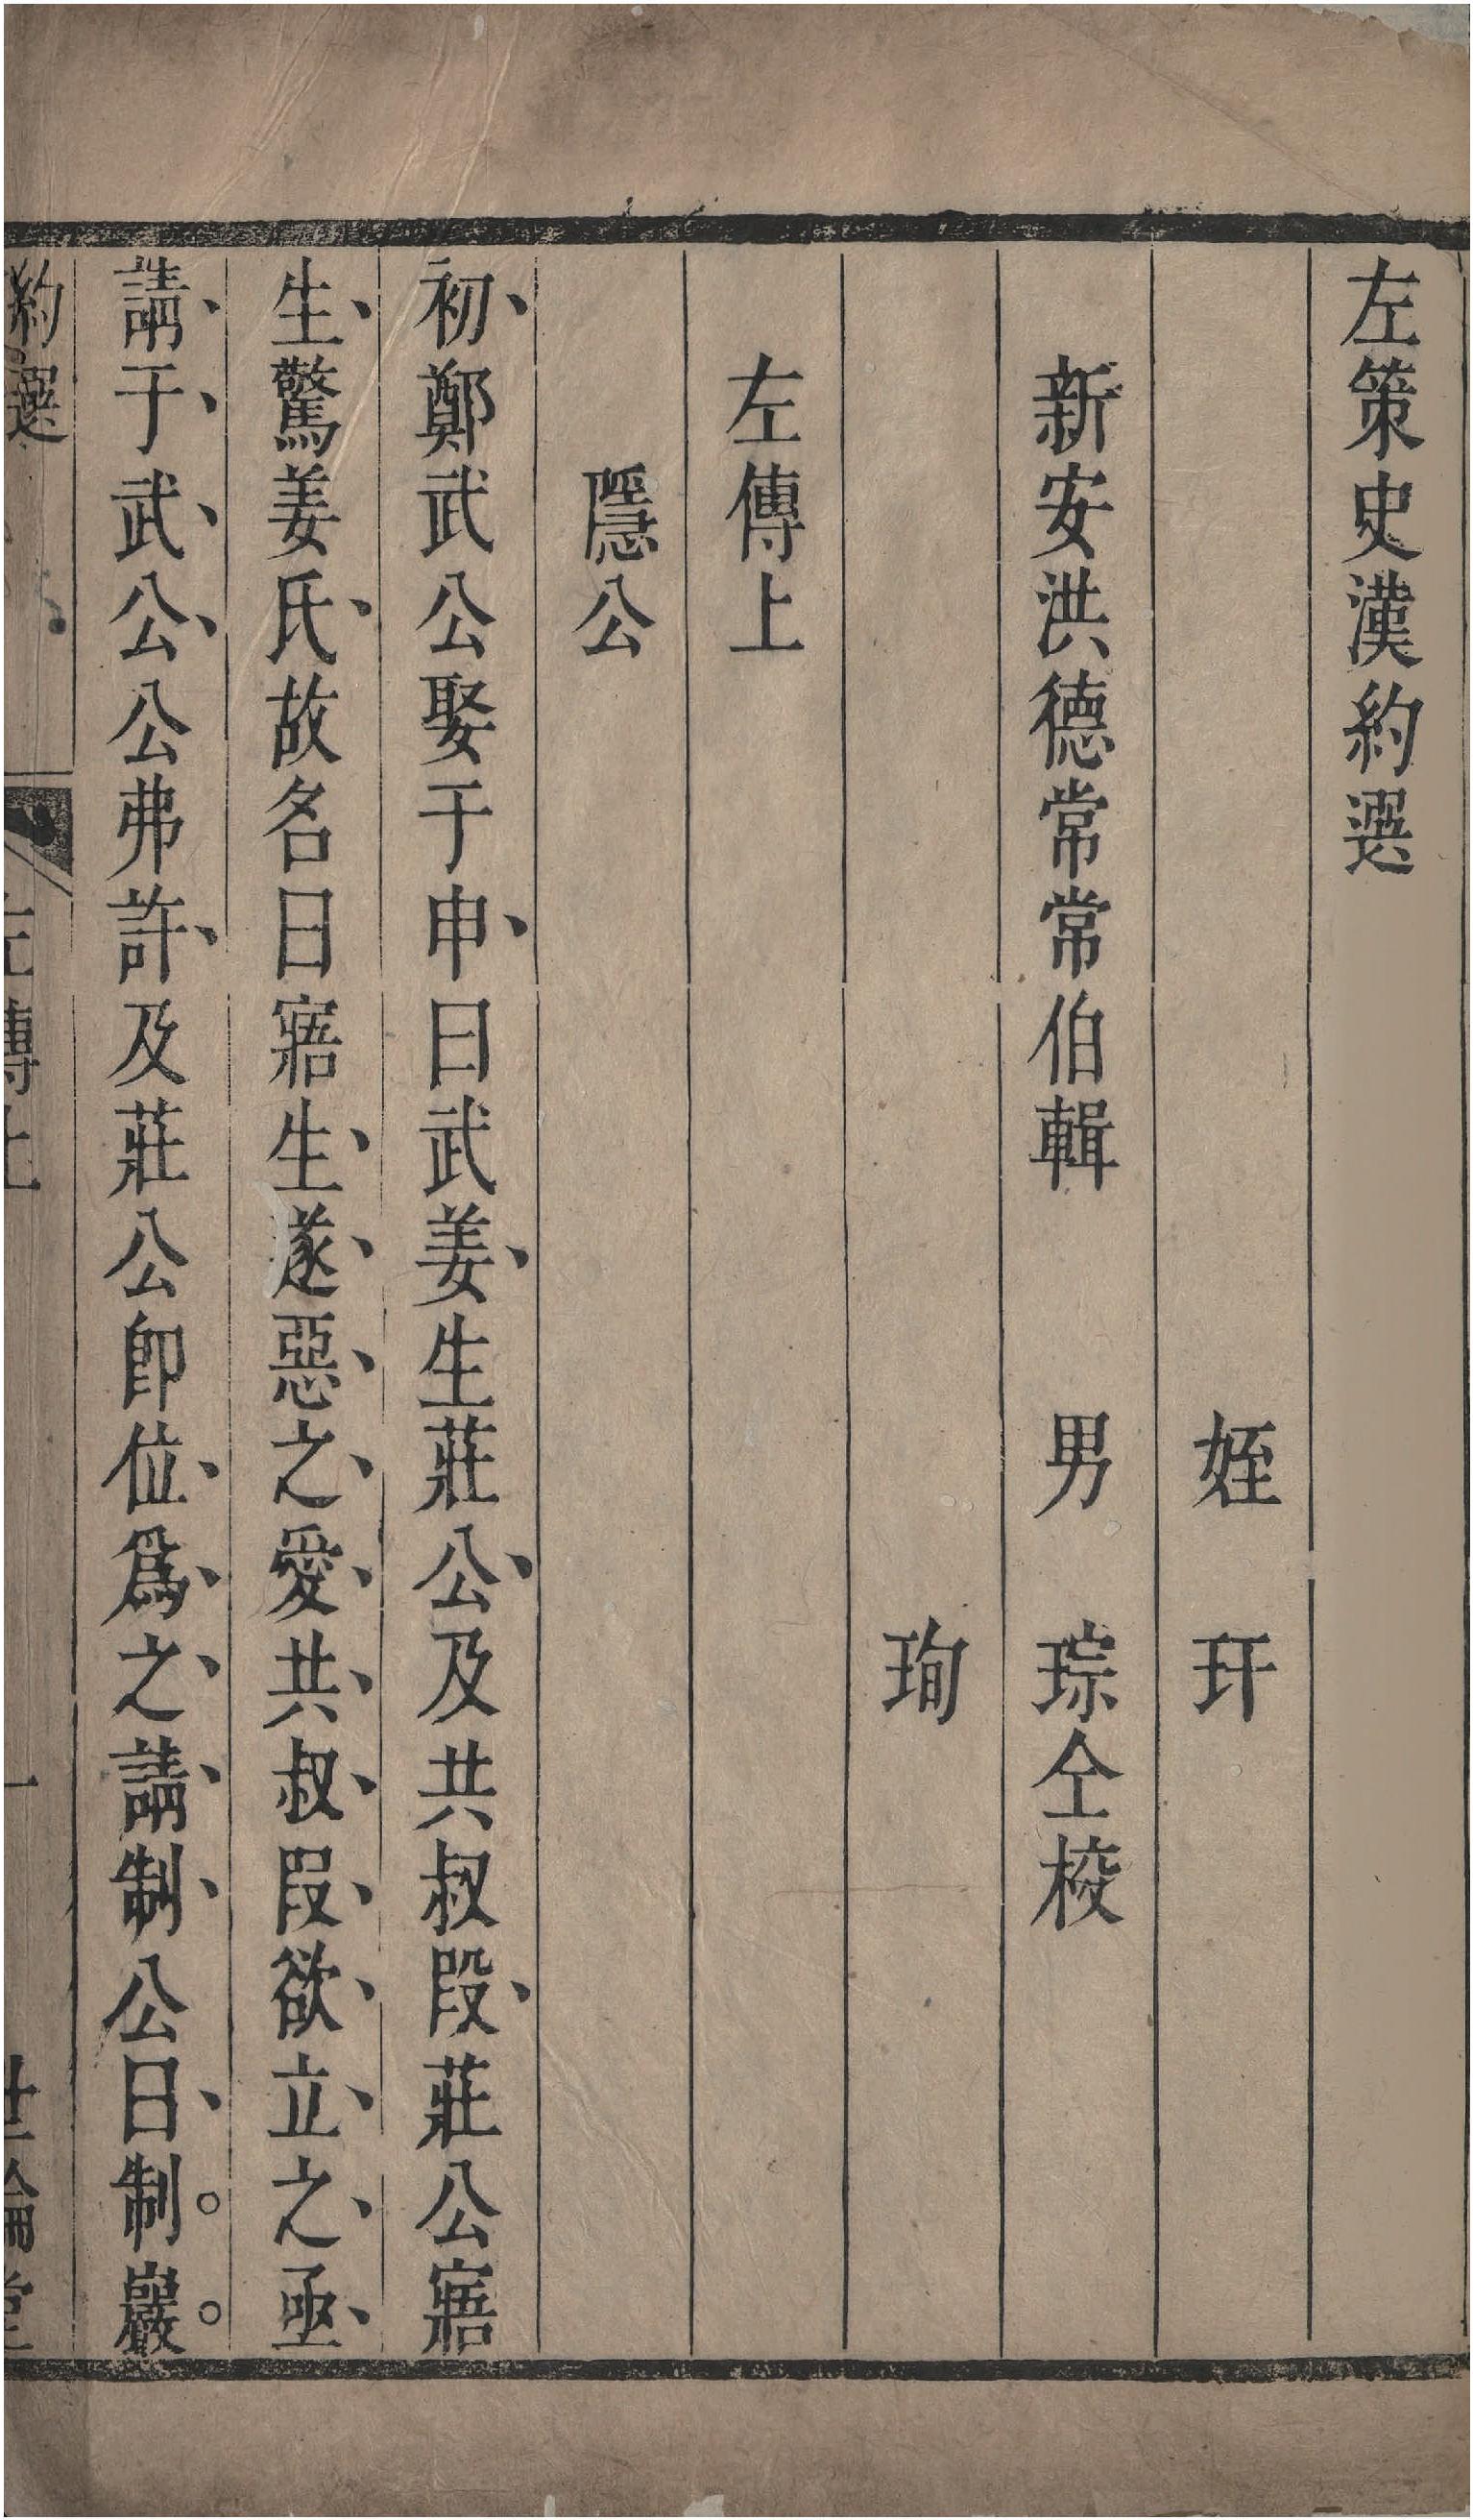 左策史漢約選
姪　玕
新安洪德常常伯輯　男　琮仝校
珣
左傳上
隱公
初鄭武公娶于申曰武姜生莊公及共叔段莊公寤
生驚姜氏故名曰寤生遂惡之愛共叔段欲立之亟
請于武公公弗許及莊公卽位爲之請制公曰制巖
約選　左傳上　一